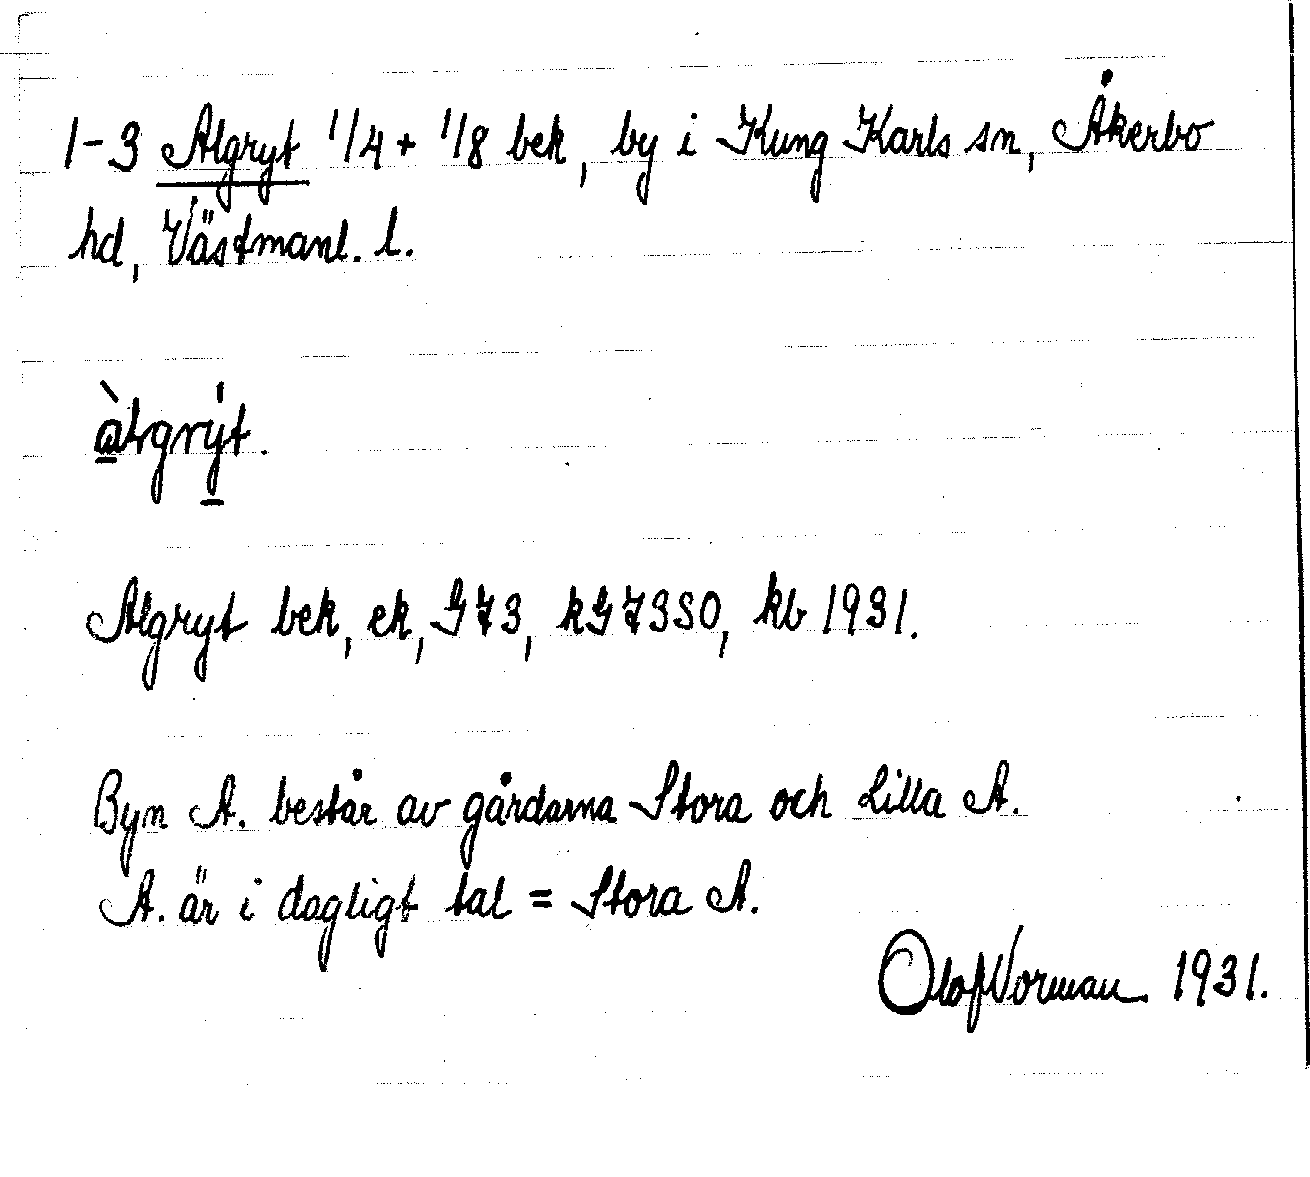 1-3 Algryt 1/4 + 1/8 bek, by i Kung Karls sn, Åkerbo
hd, Västmanl. l.
àlgrýt.
Algryt bek, ek, GJ3, kGJ350, kb 1931.
Byn A. består av gårdarna Stora och Lilla A.
A. är i dagligt tal = Stora A.
Olof Vorman 1931.